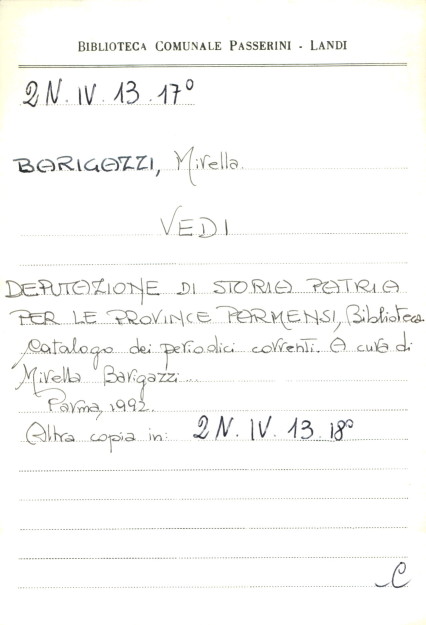 BIBLIOTECA COMUNALE PASSERINI - LANDI
2 N. IV. 13. 17°
BARIGAZZI, Mirella.
VEDI
DEPUTAZIONE DI STORIA PATRIA
PER LE PROVINCE PARMENSI, Biblioteca
Catalogo dei periodici correnti. A cura di
Mirella Barigazzi...
Parma, 1992.
Altra copia in: 2 N. IV. 13. 18°
C